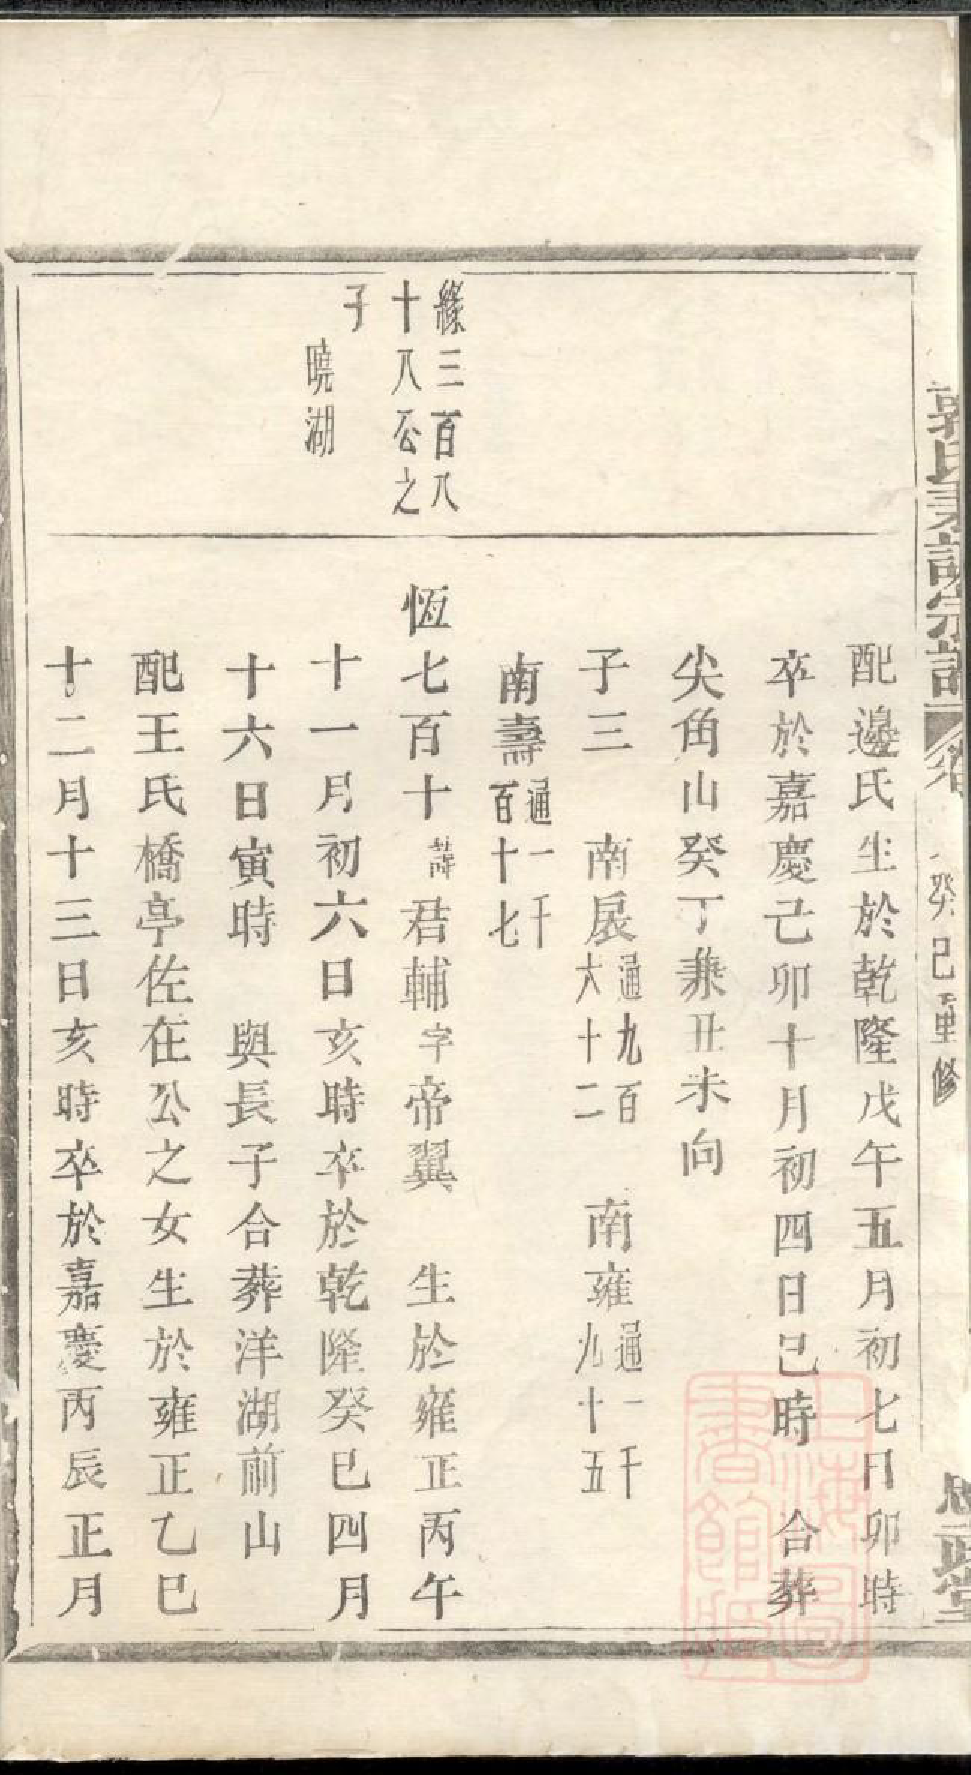 配邊氏生於乾隆戊午五月初七日卯時
卒於嘉慶己卯十月初四日巳時 合葬
尖角山癸丁兼丑未向
子三 南扆通九百六十二 南雍通一千九十五
南壽通一千百十七
緣三百八
十八公之
子
曉湖
恆七百十諱君輔字帝翼 生於雍正丙午
十一月初六日亥時卒於乾隆癸巳四月
十六日寅時 與長子合葬洋湖前山
配王氏橋亭佐在公之女生於雍正乙巳
十二月十三日亥時卒於嘉慶丙辰正月
癸巳重修
上海圖書館藏